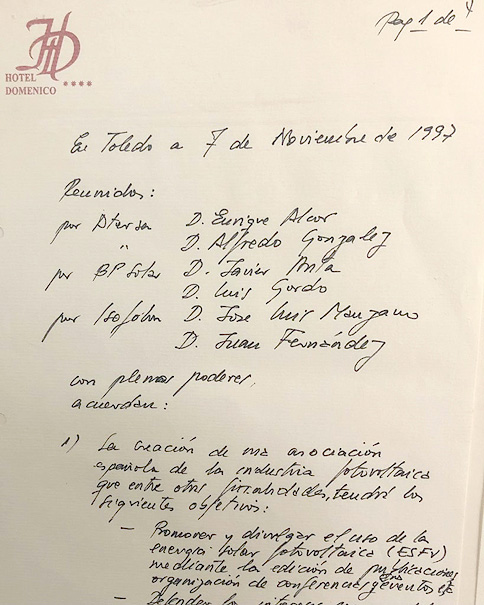 Pag 1 de 4
HD
HOTEL
DOMENICO ****
En Toledo a 7 de Noviembre de 1997
Reunidos:
por Atersa D. Enrique Alcor
" D. Alfredo Gonzalez
por BP Solar D. Javier Anta
D. Luis Gordo
por Isofoton D. Jose Luis Manzano
D. Juan Fernández
con plenos poderes,
acuerdan:
1) La creación de una asociación
española de la industria fotovoltaica
que entre otras finalidades, tendrá los
siguientes objetivos:
— Promover y divulgar el uso de la
energia solar fotovoltaica (ESFV)
mediante la edición de publicaciones,
organización de conferencias y eventos
— Defender los